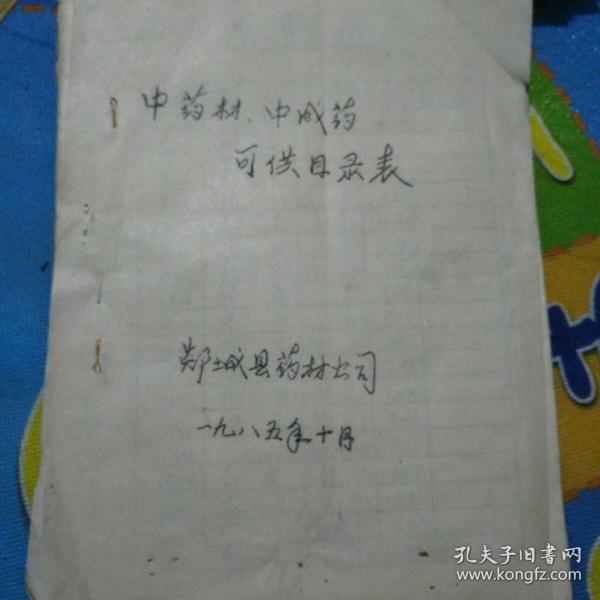 中药材、中成药
可供目录表
郯城县药材公司
一九八五年十月
孔夫子旧書网
www.kongfz.com